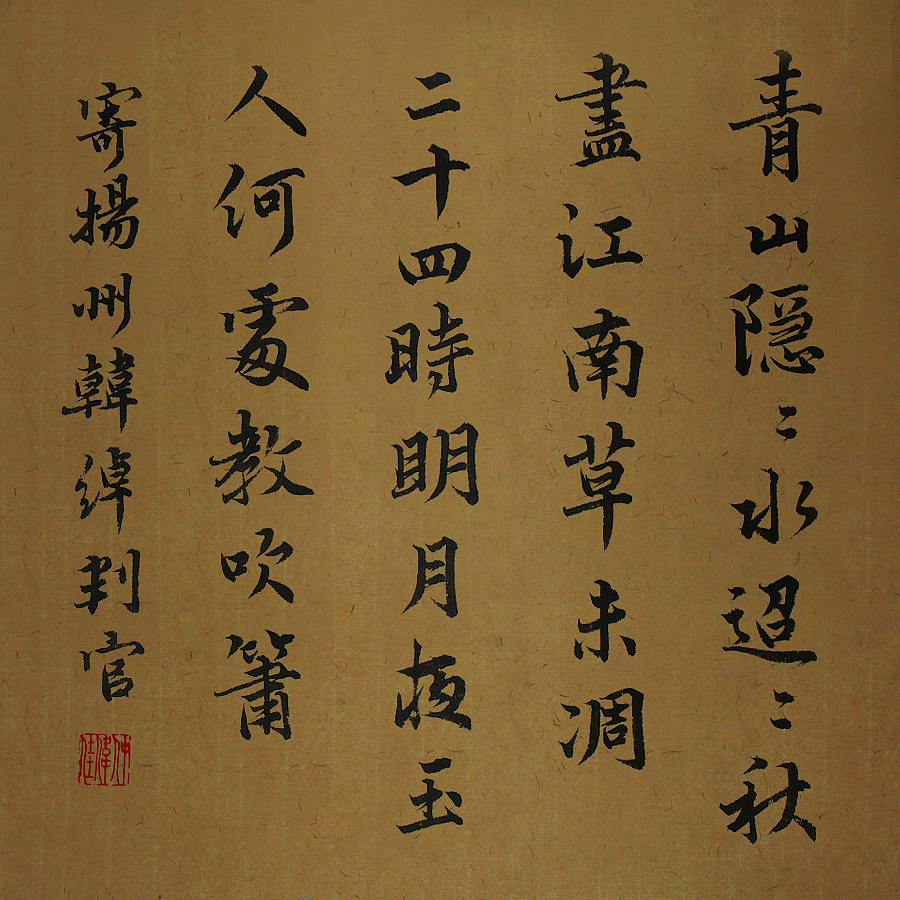 青山隐〻水迢〻秋
盡江南草未凋
二十四時明月夜玉
人何處教吹簫
寄揚州韓綽判官